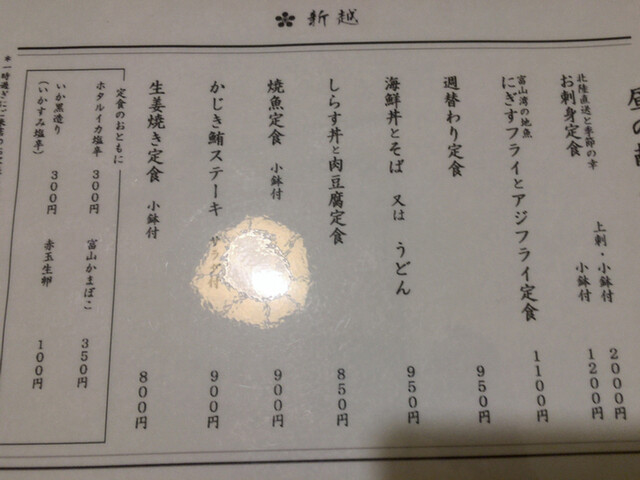 新越
昼の
北陸直送と季節の幸
お刺身定食
上刺・小鉢付 2000円
小鉢付 1200円
富山湾の地魚
にぎすフライとアジフライ定食 1100円
週替わり定食 950円
海鮮丼とそば 又は うどん 950円
しらす丼と肉豆腐定食 850円
焼魚定食 小鉢付 900円
かじき鮪ステーキ 900円
生姜焼き定食 小鉢付 800円
定食のおともに
ホタルイカ塩辛 300円
富山かまぼこ 350円
いか黒造り 300円
(いかすみ塩辛)
赤玉生卵 100円